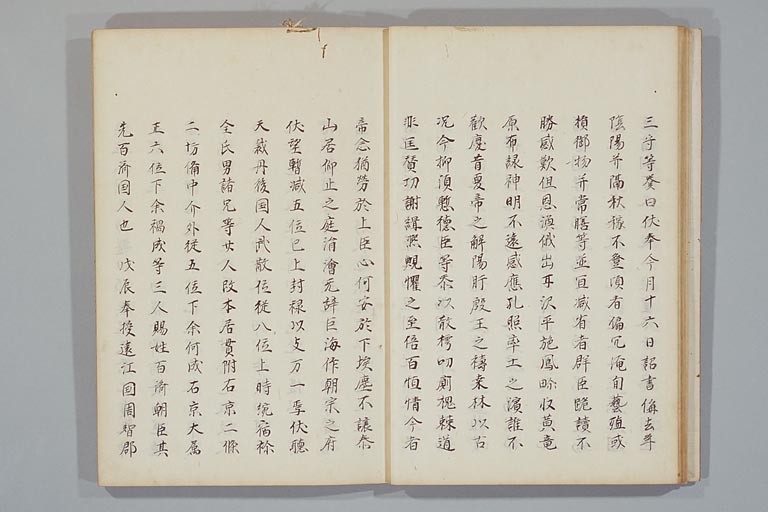 三守等奏曰伏奉今月十六日詔書偁去年
陰陽并隔秋稼不登頃者偏亢淹旬藝殖或
損御物并常膳等並宜減省者群臣跪讀不
勝感歎但恩渙俄出再沢平施鳳畛収黄竜
原布緑神明不遠感應孔照率土之濱誰不
歓慶昔夏帝之解陽肝殷王之禱桑林以古
况今抑須慙徳臣等忝以散樗叨廁槐棘道
非匡賛功謝緝熙覥懼之至倍百恒情今者
帝念猶労於上臣心何安於下埃塵不譲泰
山居仰止之庭涓澮无辞巨海作朝宗之府
伏望暫减五位已上封禄以支万一季伏聴
天裁丹後国人武散位従八位上時統宿祢
全氏男諸兄等廿人改本居貫附右京二條
二坊備中介外従五位下余河成右京大属
正六位下余福成等三人賜姓百済朝臣其
先百済国人也 戊辰奉授遠江国周智郡